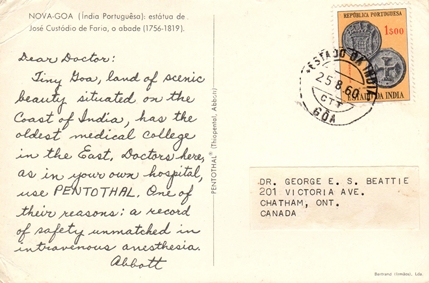 NOVA-GOA (Índia Portuguêsa): estátua de
José Custódio de Faria, o abade (1756-1819).
Dear Doctor:
Tiny Goa, land of scenic
beauty situated on the
Coast of India, has the
oldest medical college
in the East. Doctors here,
as in your own hospital,
use PENTOTHAL. One of
their reasons: a record
of safety unmatched in
intravenous anesthesia.
Abbott
PENTOTHAL® (Thiopental, Abbott)
REPÚBLICA PORTUGUESA
1$00
ESTADO DA INDIA
ESTADO DA INDIA
25 8 60
CTT
GOA
DR. GEORGE E. S. BEATTIE
201 VICTORIA AVE.
CHATHAM, ONT.
CANADA